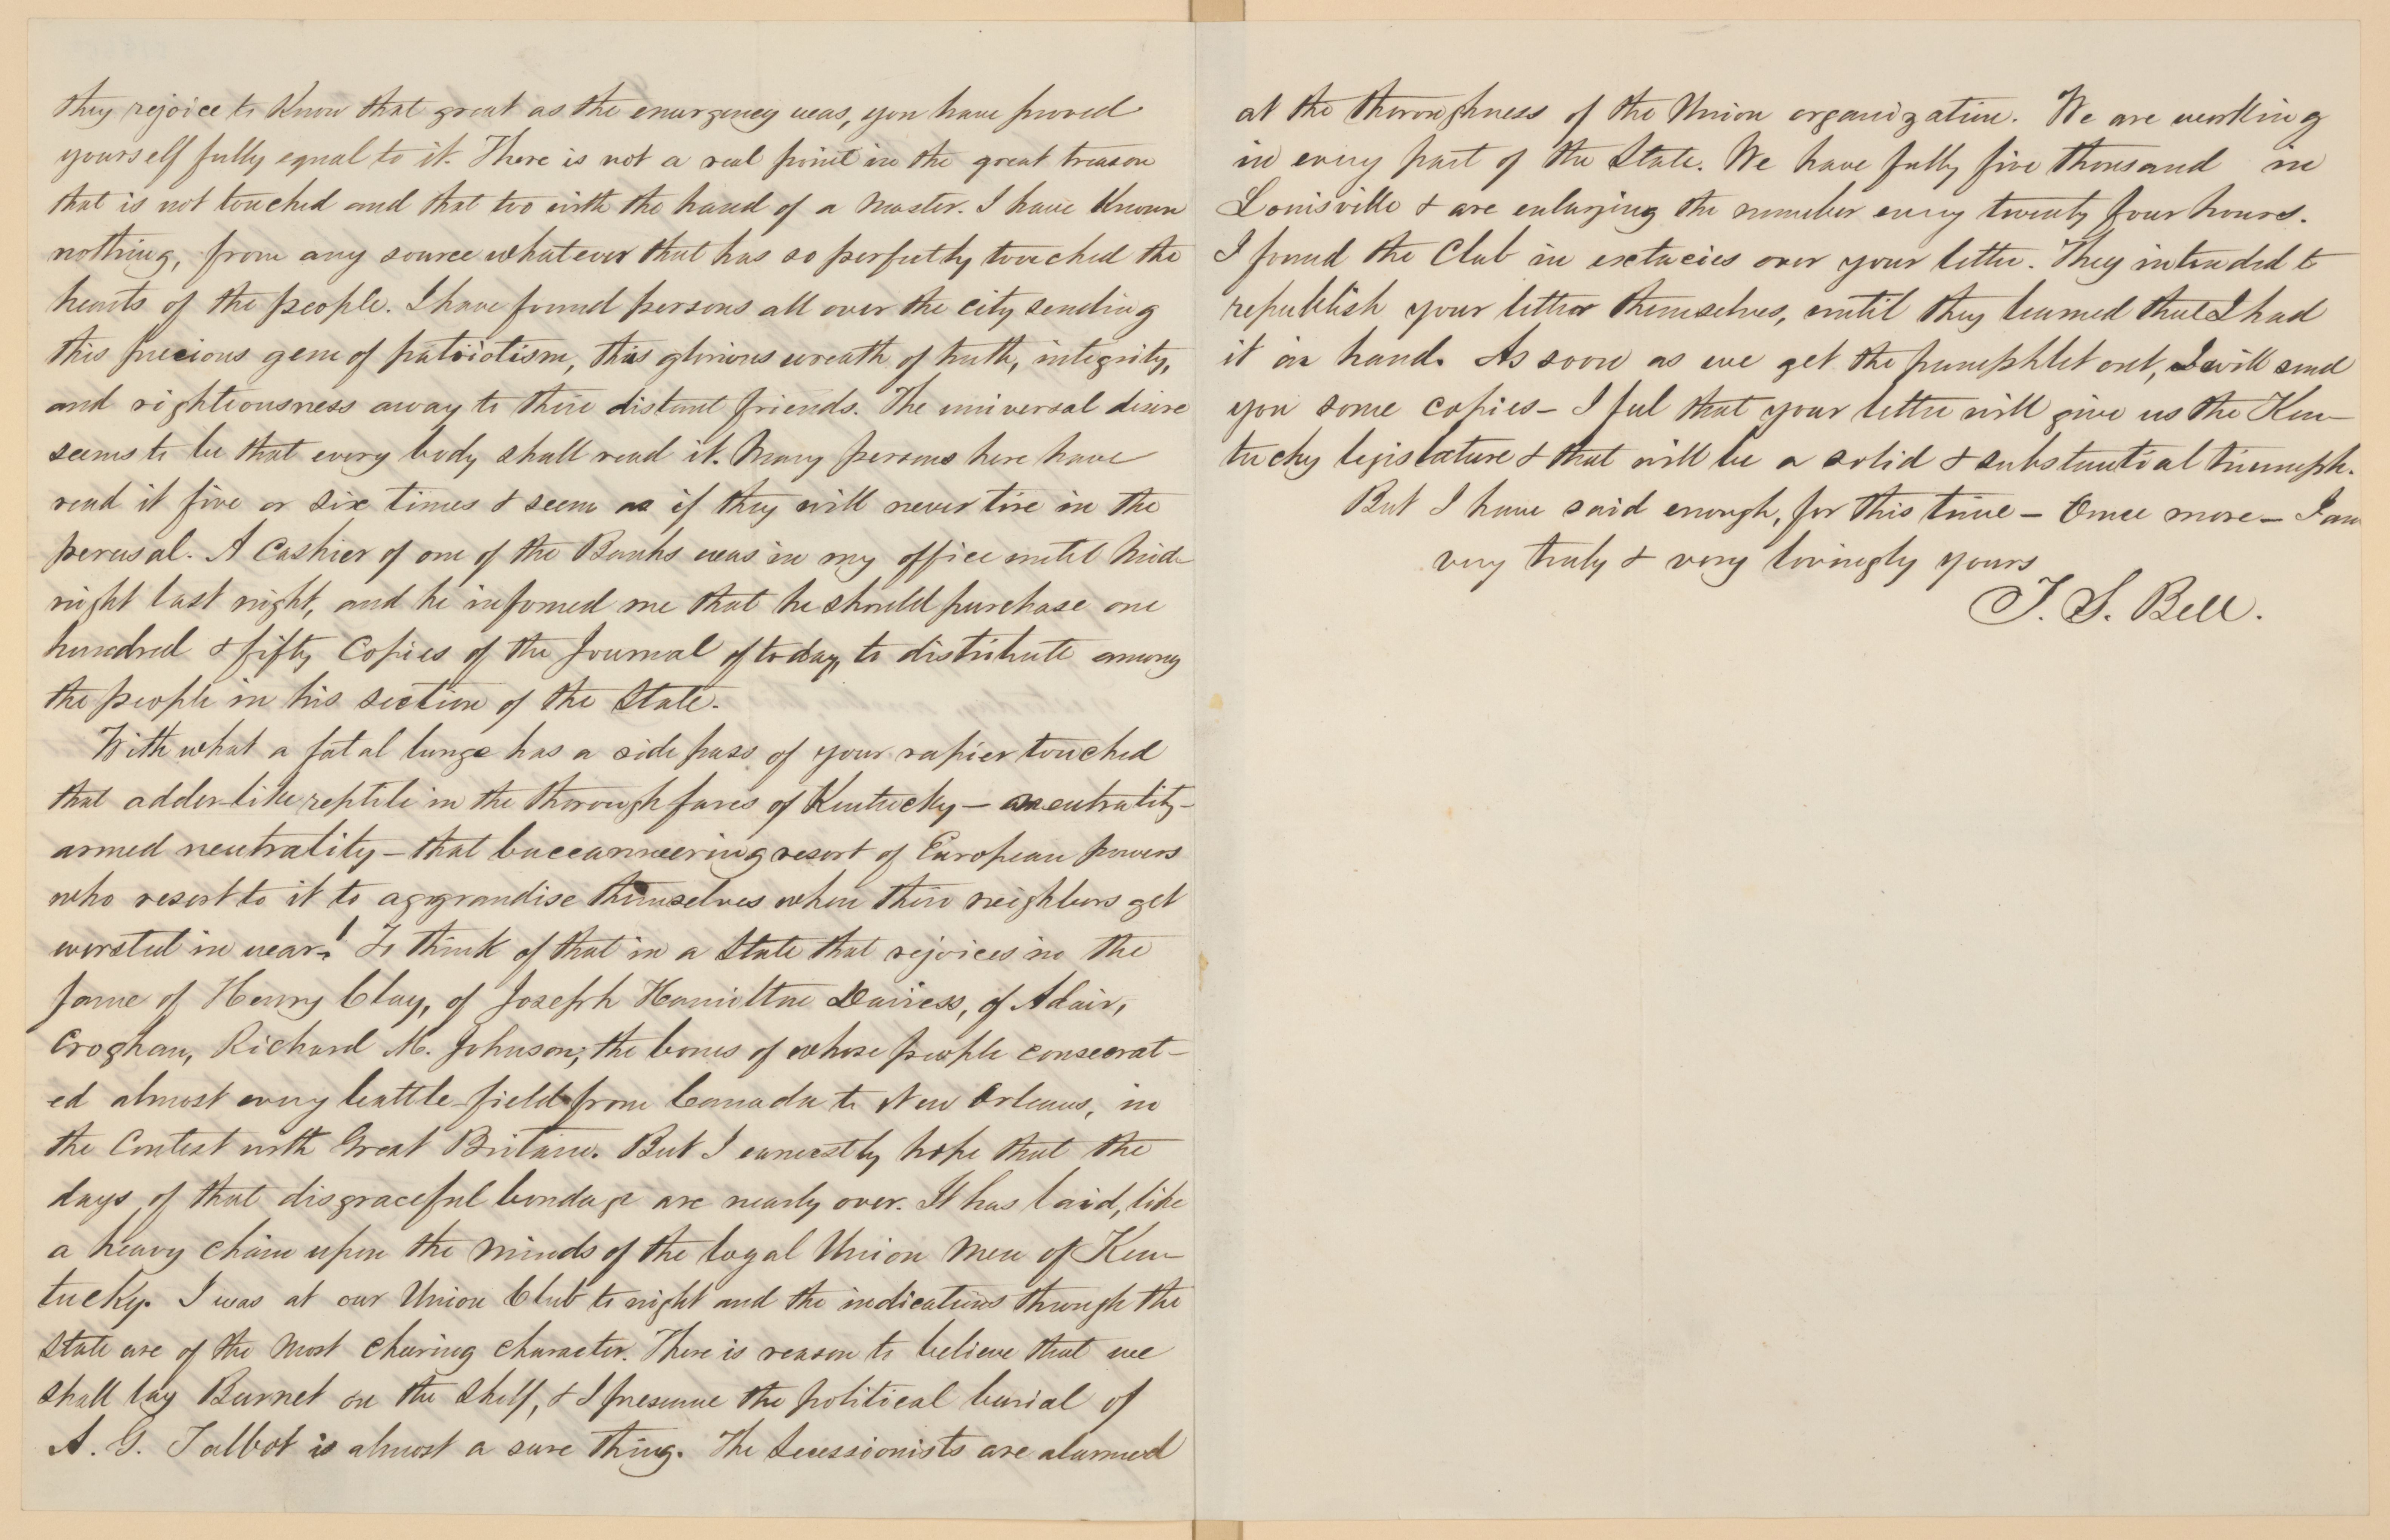 they rejoice to know that great as the emergency was, you have proved
yourself fully equal to it. There is not a real point in the great treason
that is not touched and that too with the hand of a master. I have known
nothing, from any source whatever that has so perfectly touched the
hearts of the people. I have found persons all over the city sending
this precious gem of patriotism, this glorious wreath of truth, integrity,
and righteousness away to their distant friends. The universal desire
seems to be that every body shall read it. Many persons here have
read it five or six times & seem as if they will never tire in the
perusal. A Cashier of one of the Banks was in my office until mid-
night last night, and he infomed me that he should purchase one
hundred & fifty Copies of the Journal of today, to distribute among
the people in his section of the State.
With what a fatal lunge has a side pass of your rapier touched
that adder-like reptile in the thoroughfares of Kentucky — neutrality -
armed neutrality — that buccanneering resort of European powers
who resort to it to aggrandise themselves when their neighbors get
worsted in war! To think of that in a State that rejoices in the
fame of Henry Clay, of Joseph Hamilton Daviess, of Adair,
Croghan, Richard M. Johnson, the bones of whose people consecrat-
ed almost every battle-field from Canada to New Orleans, in
the Contest with Great Britain. But I earnestly hope that the
days of that disgraceful bondage are nearly over. It has laid, like
a heavy chain upon the minds of the loyal Union men of Ken-
tucky. I was at our Union Club to night and the indications through the
State are of the most cheering character. There is reason to believe that we
shall lay Burnet on the shelf, & I presume the political burial of
A. G. Talbot is almost a sure thing. The Secessionists are alarmed
at the thoroughness of the Union organization. We are working
in every part of the State. We have fully five thousand in
Louisville & are enlarging the number every twenty four hours.
I found the Club in extacies over your letter. They intended to
republish your letter themselves, until they learned that I had
it in hand. As soon as we get the pamphlet out, I will send
you some copies — I feel that your letter will give us the Ken-
tucky legislature & that will be a solid & substantial triumph.
But I have said enough, for this time — Once more — I am
very truly & very lovingly yours
T. S. Bell.